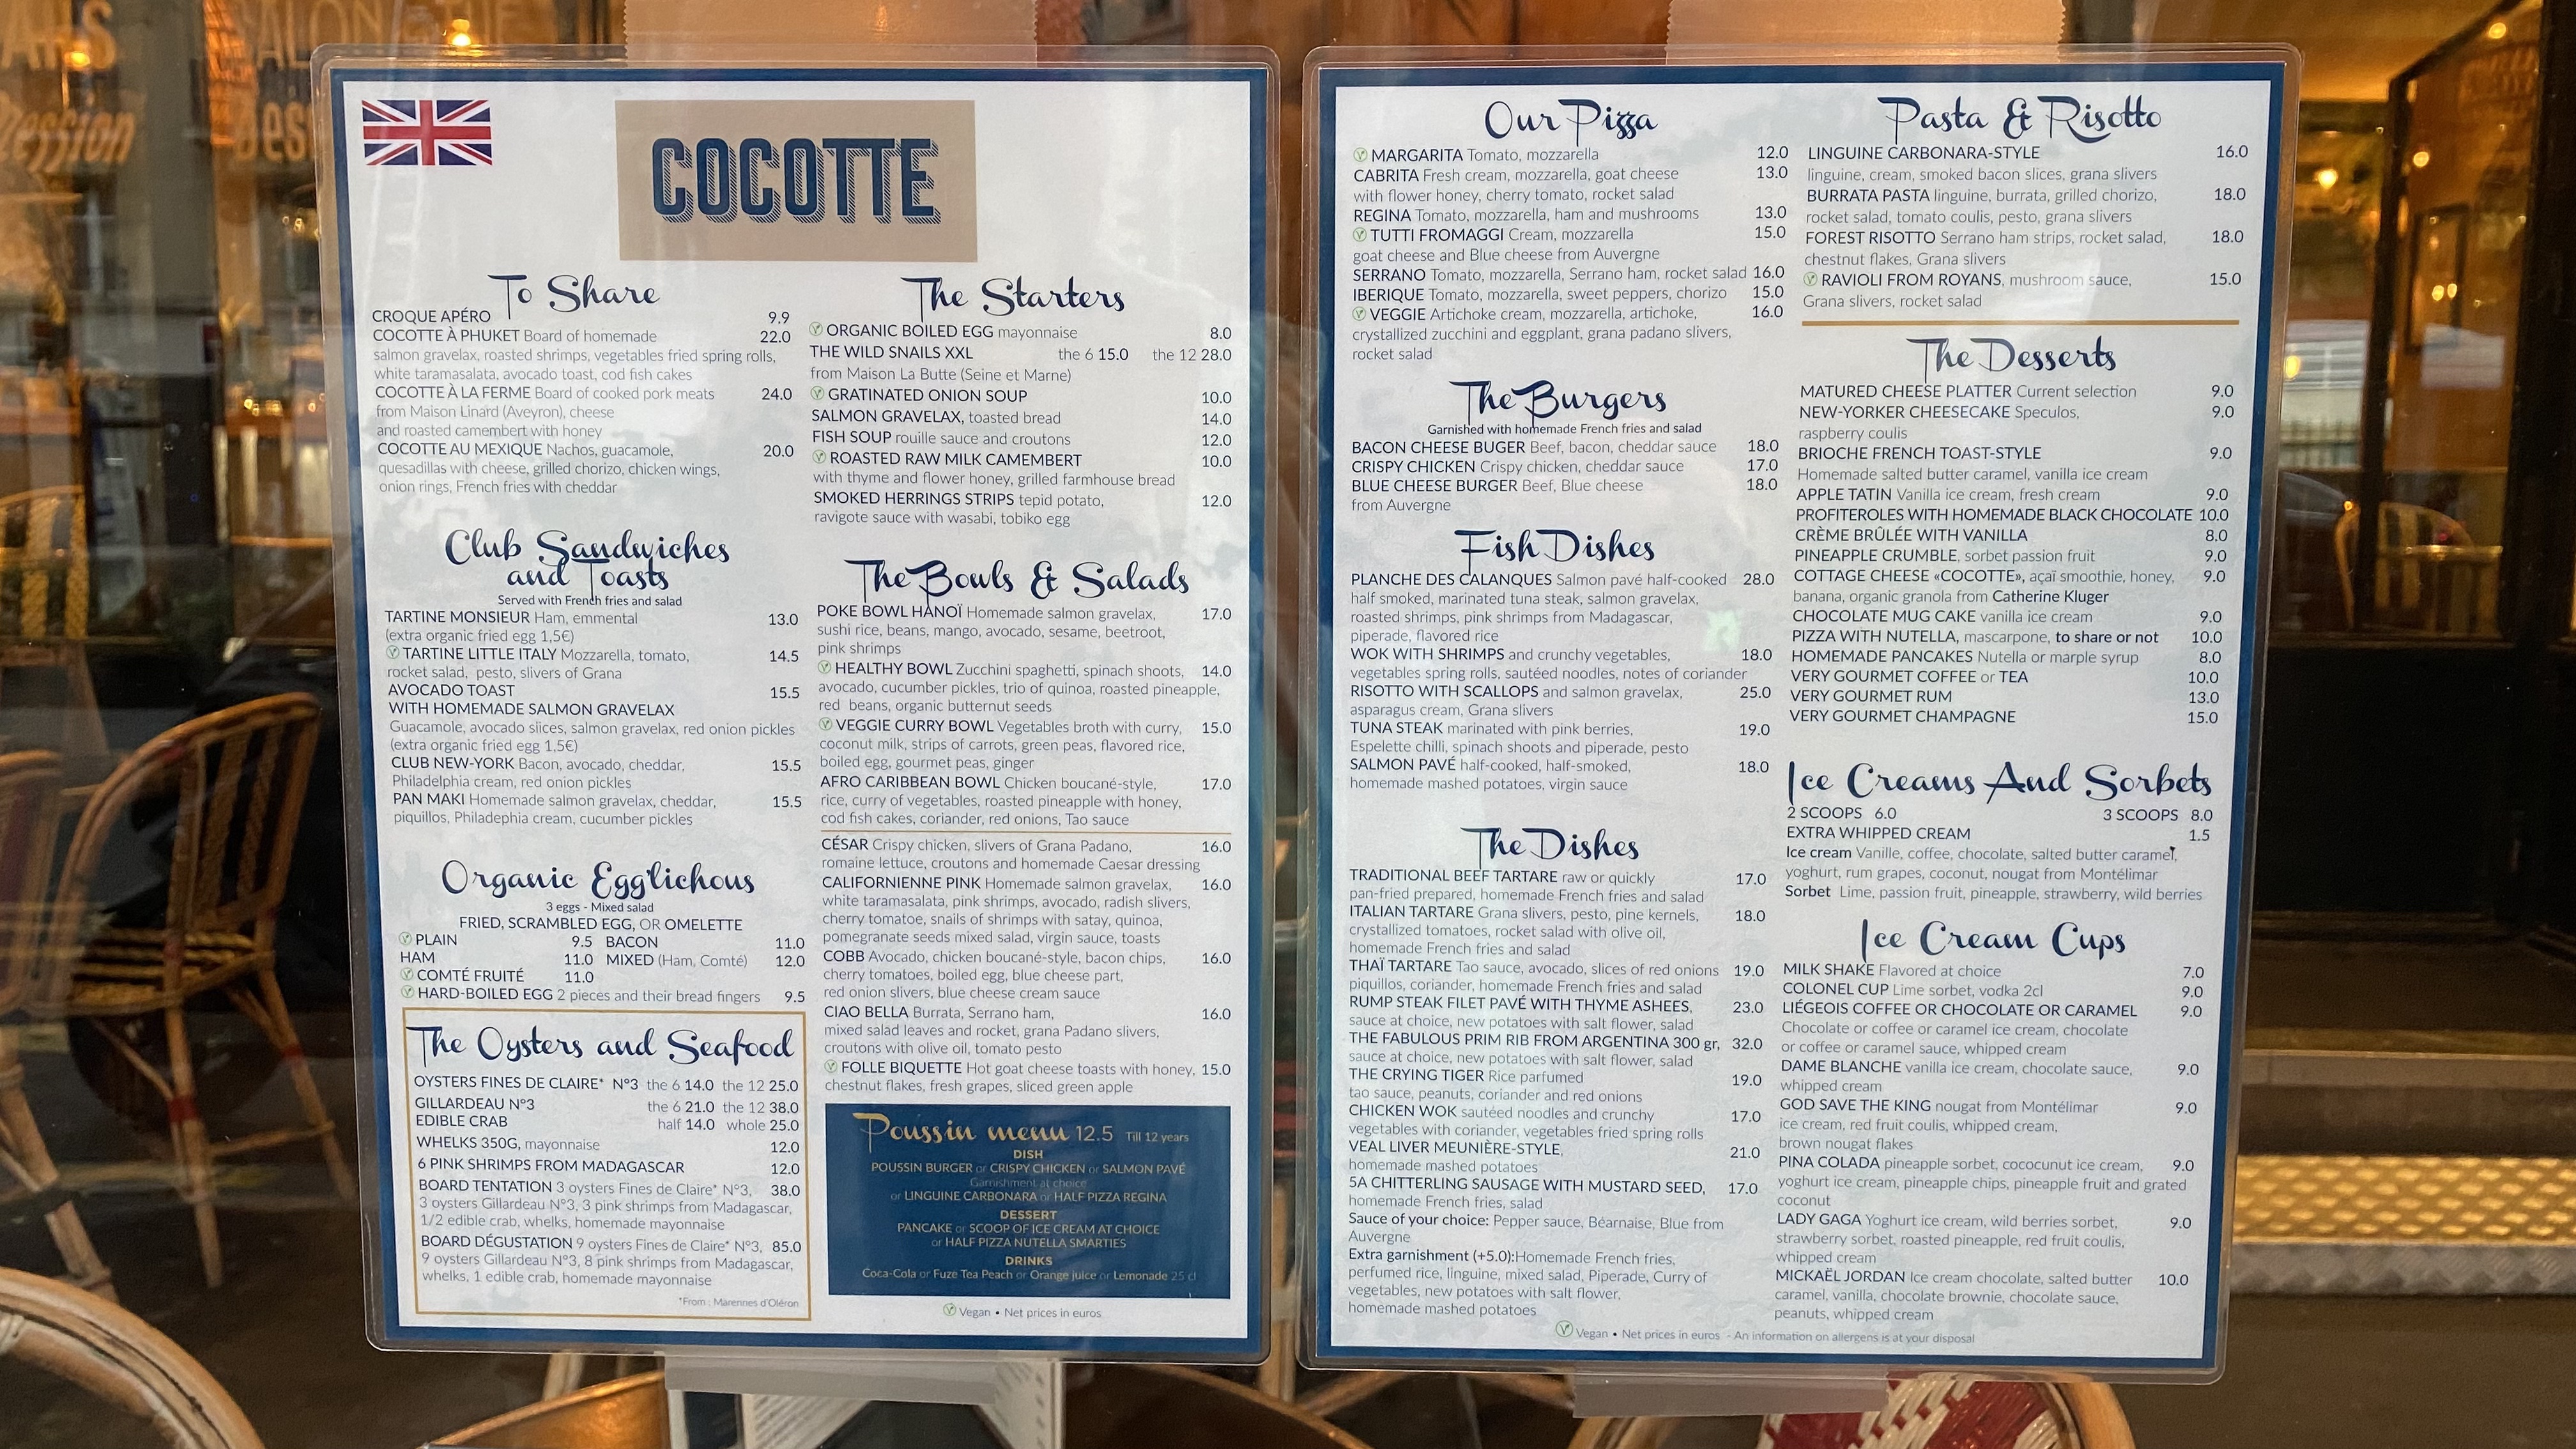 COCOTTE
To Share
CROQUE APÉRO 9.9
COCOTTE À PHUKET Board of homemade 22.0
salmon gravelax, roasted shrimps, vegetables fried spring rolls,
white taramasalata, avocado toast, cod fish cakes
COCOTTE À LA FERME Board of cooked pork meats 24.0
from Maison Linard (Aveyron), cheese
and roasted camembert with honey
COCOTTE AU MEXIQUE Nachos, guacamole, 20.0
quesadillas with cheese, grilled chorizo, chicken wings,
onion rings, French fries with cheddar
Club Sandwiches
and Toasts
Served with French fries and salad
TARTINE MONSIEUR Ham, emmental 13.0
(extra organic fried egg 1,5€)
TARTINE LITTLE ITALY Mozzarella, tomato, 14.5
rocket salad, pesto, slivers of Grana
AVOCADO TOAST 15.5
WITH HOMEMADE SALMON GRAVELAX
Guacamole, avocado slices, salmon gravelax, red onion pickles
(extra organic fried egg 1,5€)
CLUB NEW-YORK Bacon, avocado, cheddar, 15.5
Philadelphia cream, red onion pickles
PAN MAKI Homemade salmon gravelax, cheddar, 15.5
piquillos, Philadephia cream, cucumber pickles
Organic Egg'lichous
3 eggs - Mixed salad
FRIED, SCRAMBLED EGG, OR OMELETTE
PLAIN 9.5 BACON 11.0
HAM 11.0 MIXED (Ham, Comté) 12.0
COMTÉ FRUITÉ 11.0
HARD-BOILED EGG 2 pieces and their bread fingers 9.5
The Oysters and Seafood
OYSTERS FINES DE CLAIRE* N°3 the 6 14.0 the 12 25.0
GILLARDEAU N°3 the 6 21.0 the 12 38.0
EDIBLE CRAB half 14.0 whole 25.0
WHELKS 350G, mayonnaise 12.0
6 PINK SHRIMPS FROM MADAGASCAR 12.0
BOARD TENTATION 3 oysters Fines de Claire* N°3, 38.0
3 oysters Gillardeau N°3, 3 pink shrimps from Madagascar,
1/2 edible crab, whelks, homemade mayonnaise
BOARD DÉGUSTATION 9 oysters Fines de Claire* N°3, 85.0
9 oysters Gillardeau N°3, 8 pink shrimps from Madagascar,
whelks, 1 edible crab, homemade mayonnaise
*From : Marennes d'Oléron
The Starters
ORGANIC BOILED EGG mayonnaise 8.0
THE WILD SNAILS XXL the 6 15.0 the 12 28.0
from Maison La Butte (Seine et Marne)
GRATINATED ONION SOUP 10.0
SALMON GRAVELAX, toasted bread 14.0
FISH SOUP rouille sauce and croutons 12.0
ROASTED RAW MILK CAMEMBERT 10.0
with thyme and flower honey, grilled farmhouse bread
SMOKED HERRINGS STRIPS tepid potato, 12.0
ravigote sauce with wasabi, tobiko egg
The Bowls & Salads
POKE BOWL HANOÏ Homemade salmon gravelax, 17.0
sushi rice, beans, mango, avocado, sesame, beetroot,
pink shrimps
HEALTHY BOWL Zucchini spaghetti, spinach shoots, 14.0
avocado, cucumber pickles, trio of quinoa, roasted pineapple,
red beans, organic butternut seeds
VEGGIE CURRY BOWL Vegetables broth with curry, 15.0
coconut milk, strips of carrots, green peas, flavored rice,
boiled egg, gourmet peas, ginger
AFRO CARIBBEAN BOWL Chicken boucané-style, 17.0
rice, curry of vegetables, roasted pineapple with honey,
cod fish cakes, coriander, red onions, Tao sauce
CÉSAR Crispy chicken, slivers of Grana Padano, 16.0
romaine lettuce, croutons and homemade Caesar dressing
CALIFORNIENNE PINK Homemade salmon gravelax, 16.0
white taramasalata, pink shrimps, avocado, radish slivers,
cherry tomatoe, snails of shrimps with satay, quinoa,
pomegranate seeds mixed salad, virgin sauce, toasts
COBB Avocado, chicken boucané-style, bacon chips, 16.0
cherry tomatoes, boiled egg, blue cheese part,
red onion slivers, blue cheese cream sauce
CIAO BELLA Burrata, Serrano ham, 16.0
mixed salad leaves and rocket, grana Padano slivers,
croutons with olive oil, tomato pesto
FOLLE BIQUETTE Hot goat cheese toasts with honey, 15.0
chestnut flakes, fresh grapes, sliced green apple
Poussin menu 12.5 Till 12 years
DISH
POUSSIN BURGER or CRISPY CHICKEN or SALMON PAVÉ
Garnishment at choice
or LINGUINE CARBONARA or HALF PIZZA REGINA
DESSERT
PANCAKE or SCOOP OF ICE CREAM AT CHOICE
or HALF PIZZA NUTELLA SMARTIES
DRINKS
Coca-Cola or Fuze Tea Peach or Orange juice or Lemonade 25 cl
Vegan • Net prices in euros
Our Pizza
MARGARITA Tomato, mozzarella 12.0
CABRITA Fresh cream, mozzarella, goat cheese 13.0
with flower honey, cherry tomato, rocket salad
REGINA Tomato, mozzarella, ham and mushrooms 13.0
TUTTI FROMAGGI Cream, mozzarella 15.0
goat cheese and Blue cheese from Auvergne
SERRANO Tomato, mozzarella, Serrano ham, rocket salad 16.0
IBERIQUE Tomato, mozzarella, sweet peppers, chorizo 15.0
VEGGIE Artichoke cream, mozzarella, artichoke, 16.0
crystallized zucchini and eggplant, grana padano slivers,
rocket salad
The Burgers
Garnished with homemade French fries and salad
BACON CHEESE BUGER Beef, bacon, cheddar sauce 18.0
CRISPY CHICKEN Crispy chicken, cheddar sauce 17.0
BLUE CHEESE BURGER Beef, Blue cheese 18.0
from Auvergne
Fish Dishes
PLANCHE DES CALANQUES Salmon pavé half-cooked 28.0
half smoked, marinated tuna steak, salmon gravelax,
roasted shrimps, pink shrimps from Madagascar,
piperade, flavored rice
WOK WITH SHRIMPS and crunchy vegetables, 18.0
vegetables spring rolls, sautéed noodles, notes of coriander
RISOTTO WITH SCALLOPS and salmon gravelax, 25.0
asparagus cream, Grana slivers
TUNA STEAK marinated with pink berries, 19.0
Espelette chilli, spinach shoots and piperade, pesto
SALMON PAVÉ half-cooked, half-smoked, 18.0
homemade mashed potatoes, virgin sauce
The Dishes
TRADITIONAL BEEF TARTARE raw or quickly 17.0
pan-fried prepared, homemade French fries and salad
ITALIAN TARTARE Grana slivers, pesto, pine kernels, 18.0
crystallized tomatoes, rocket salad with olive oil,
homemade French fries and salad
THAÏ TARTARE Tao sauce, avocado, slices of red onions 19.0
piquillos, coriander, homemade French fries and salad
RUMP STEAK FILET PAVÉ WITH THYME ASHEES, 23.0
sauce at choice, new potatoes with salt flower, salad
THE FABULOUS PRIM RIB FROM ARGENTINA 300 gr, 32.0
sauce at choice, new potatoes with salt flower, salad
THE CRYING TIGER Rice parfumed 19.0
tao sauce, peanuts, coriander and red onions
CHICKEN WOK sautéed noodles and crunchy 17.0
vegetables with coriander, vegetables fried spring rolls
VEAL LIVER MEUNIÈRE-STYLE, 21.0
homemade mashed potatoes
5A CHITTERLING SAUSAGE WITH MUSTARD SEED, 17.0
homemade French fries, salad
Sauce of your choice: Pepper sauce, Béarnaise, Blue from
Auvergne
Extra garnishment (+5.0):Homemade French fries,
perfumed rice, linguine, mixed salad, Piperade, Curry of
vegetables, new potatoes with salt flower,
homemade mashed potatoes
Pasta & Risotto
LINGUINE CARBONARA-STYLE 16.0
linguine, cream, smoked bacon slices, grana slivers
BURRATA PASTA linguine, burrata, grilled chorizo, 18.0
rocket salad, tomato coulis, pesto, grana slivers
FOREST RISOTTO Serrano ham strips, rocket salad, 18.0
chestnut flakes, Grana slivers
RAVIOLI FROM ROYANS, mushroom sauce, 15.0
Grana slivers, rocket salad
The Desserts
MATURED CHEESE PLATTER Current selection 9.0
NEW-YORKER CHEESECAKE Speculos, 9.0
raspberry coulis
BRIOCHE FRENCH TOAST-STYLE 9.0
Homemade salted butter caramel, vanilla ice cream
APPLE TATIN Vanilla ice cream, fresh cream 9.0
PROFITEROLES WITH HOMEMADE BLACK CHOCOLATE 10.0
CRÈME BRÛLÉE WITH VANILLA 8.0
PINEAPPLE CRUMBLE, sorbet passion fruit 9.0
COTTAGE CHEESE «COCOTTE», açaï smoothie, honey, 9.0
banana, organic granola from Catherine Kluger
CHOCOLATE MUG CAKE vanilla ice cream 9.0
PIZZA WITH NUTELLA, mascarpone, to share or not 10.0
HOMEMADE PANCAKES Nutella or marple syrup 8.0
VERY GOURMET COFFEE or TEA 10.0
VERY GOURMET RUM 13.0
VERY GOURMET CHAMPAGNE 15.0
Ice Creams And Sorbets
2 SCOOPS 6.0 3 SCOOPS 8.0
EXTRA WHIPPED CREAM 1.5
Ice cream Vanille, coffee, chocolate, salted butter caramel,
yoghurt, rum grapes, coconut, nougat from Montélimar
Sorbet Lime, passion fruit, pineapple, strawberry, wild berries
Ice Cream Cups
MILK SHAKE Flavored at choice 7.0
COLONEL CUP Lime sorbet, vodka 2cl 9.0
LIÉGEOIS COFFEE OR CHOCOLATE OR CARAMEL 9.0
Chocolate or coffee or caramel ice cream, chocolate
or coffee or caramel sauce, whipped cream
DAME BLANCHE vanilla ice cream, chocolate sauce, 9.0
whipped cream
GOD SAVE THE KING nougat from Montélimar 9.0
ice cream, red fruit coulis, whipped cream,
brown nougat flakes
PINA COLADA pineapple sorbet, cococunut ice cream, 9.0
yoghurt ice cream, pineapple chips, pineapple fruit and grated
coconut
LADY GAGA Yoghurt ice cream, wild berries sorbet, 9.0
strawberry sorbet, roasted pineapple, red fruit coulis,
whipped cream
MICKAËL JORDAN Ice cream chocolate, salted butter 10.0
caramel, vanilla, chocolate brownie, chocolate sauce,
peanuts, whipped cream
Vegan • Net prices in euros - An information on allergens is at your disposal